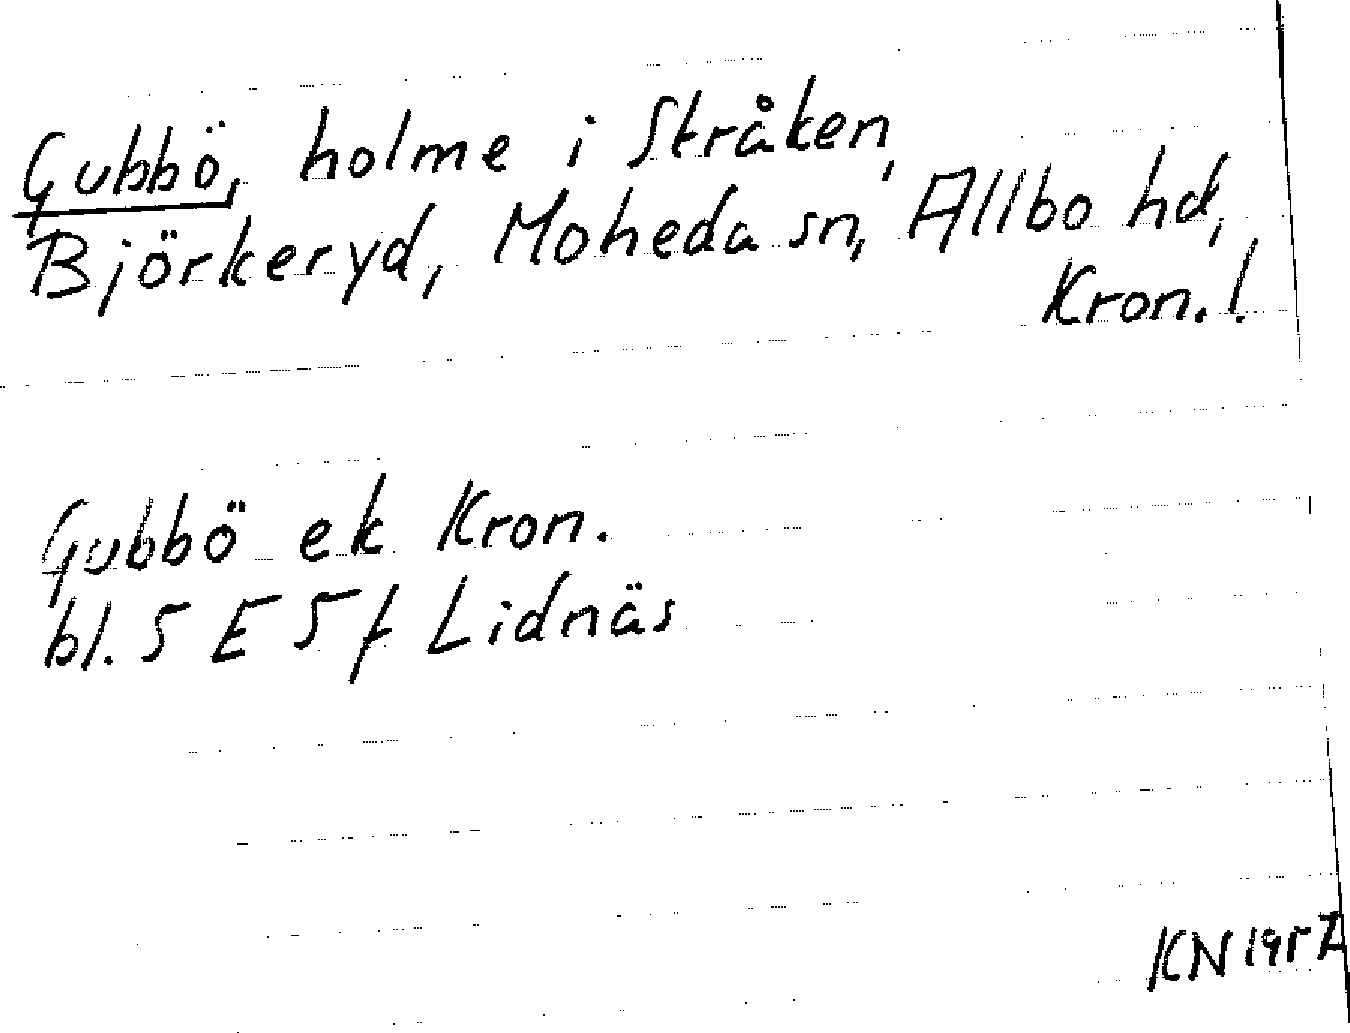 Gubbö, holme i Stråken,
Björkeryd, Moheda sn, Allbo hd,
Kron. l.
Gubbö ek Kron.
bl. 5 E 5 f Lidnäs
KN 1957